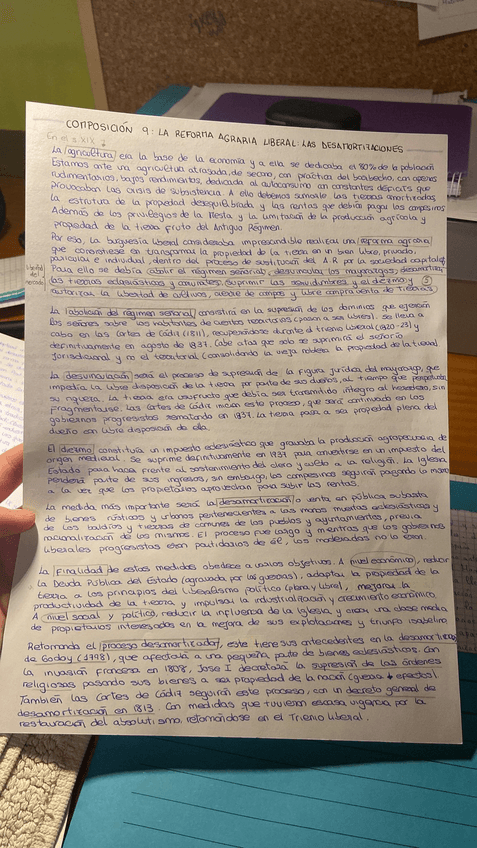 COMPOSICIÓN 9: LA REFORMA AGRARIA LIBERAL: LAS DESAMORTIZACIONES
En el s. XIX
La agricultura era la base de la economía y a ella se dedicaba el 80% de la población
Estamos ante una agricultura atrasada, de secano, con práctica del barbecho, con aperos
rudimentarios, bajos rendimientos, dedicada al autoconsumo con constantes déficits que
provocaban las crisis de subsistencia. A ello debemos sumarle las tierras amortizadas
La estructura de la propiedad desequilibrada y las rentas que debían pagar los campesinos
Además de los privilegios de la Mesta y la limitación de la producción agrícola y
propiedad de la tierra fruto del Antiguo Régimen.
Por eso, la burguesía liberal consideraba imprescindible realizar una reforma agraria
que consistiese en transformar la propiedad de la tierra en un bien libre, privado,
particular e individual, dentro del proceso de sustitución del A.R por la sociedad capitalista
Para ello se debía abolir el régimen señorial, desvincular los mayorazgos, desamortizar
las tierras eclesiásticas y comunales, suprimir las servidumbres y el diezmo y
autorizar la libertad de cultivos, aceite de campos y libre compraventa de tierras.
La abolición del régimen señorial consistirá en la supresión de los dominios que ejercían
los señores sobre los habitantes de ciertos territorios (pasan a ser libres). Se lleva a
cabo en las Cortes de Cádiz (1811), recuperándose durante el trienio liberal (1820-23) y
definitivamente en agosto de 1837. Cabe citar que solo se suprimirá el señorío
jurisdiccional y no el territorial (consolidando la vieja nobleza la propiedad de la tierra)
La desvinculación será el proceso de supresión de la figura jurídica del mayorazgo, que
impedía la libre disposición de la tierra por parte de sus dueños, al tiempo que perpetuaba
su riqueza. La tierra era usufructo que debía ser transmitido íntegro al heredero, sin
fragmentarse. Las Cortes de Cádiz inician este proceso, que será continuado en los
gobiernos progresistas rematando en 1837. La tierra pasa a ser propiedad plena del
dueño con libre disposición de ella.
El diezmo constituía un impuesto eclesiástico que gravaba la producción agropecuaria de
origen medieval. Se suprime definitivamente en 1837 para convertirse en un impuesto del
Estado para hacer frente al sostenimiento del clero y culto a la religión. La Iglesia
perderá parte de sus ingresos, sin embargo, los campesinos seguirán pagando lo mismo
a la vez que los propietarios aprovechan para subir las rentas.
La medida más importante será la desamortización o venta en pública subasta
de bienes rústicos y urbanos pertenecientes a las manos muertas eclesiásticas y
de los baldíos y tierras de comunes de los pueblos y ayuntamientos, previa
nacionalización de los mismos. El proceso fue largo y mientras que los gobiernos
liberales progresistas eran partidarios de él, los moderados no lo eran.
La finalidad de estas medidas obedece a varios objetivos. A nivel económico, reducir
la Deuda Pública del Estado (agravada por las guerras), adaptar la propiedad de la
tierra a los principios del liberalismo político (plena y libre), mejorar la
productividad de la tierra, y impulsar la industrialización y crecimiento económico.
A nivel social y político, reducir la influencia de la Iglesia, y crear una clase media
de propietarios interesados en la mejora de sus explotaciones y triunfo isabelino
Retomando el proceso desamortizador, este tiene sus antecedentes en la desamortización
de Godoy (1798), que afectará a una pequeña parte de bienes eclesiásticos. Con
la invasión francesa en 1808, José I decretará la supresión de las órdenes
religiosas pasando sus bienes a ser propiedad de la nación
También las Cortes de Cádiz seguirán este proceso, con un decreto general de
desamortización en 1813. Con medidas que tuvieron escasa vigencia por la
restauración del absolutismo, retomándose en el Trienio Liberal.